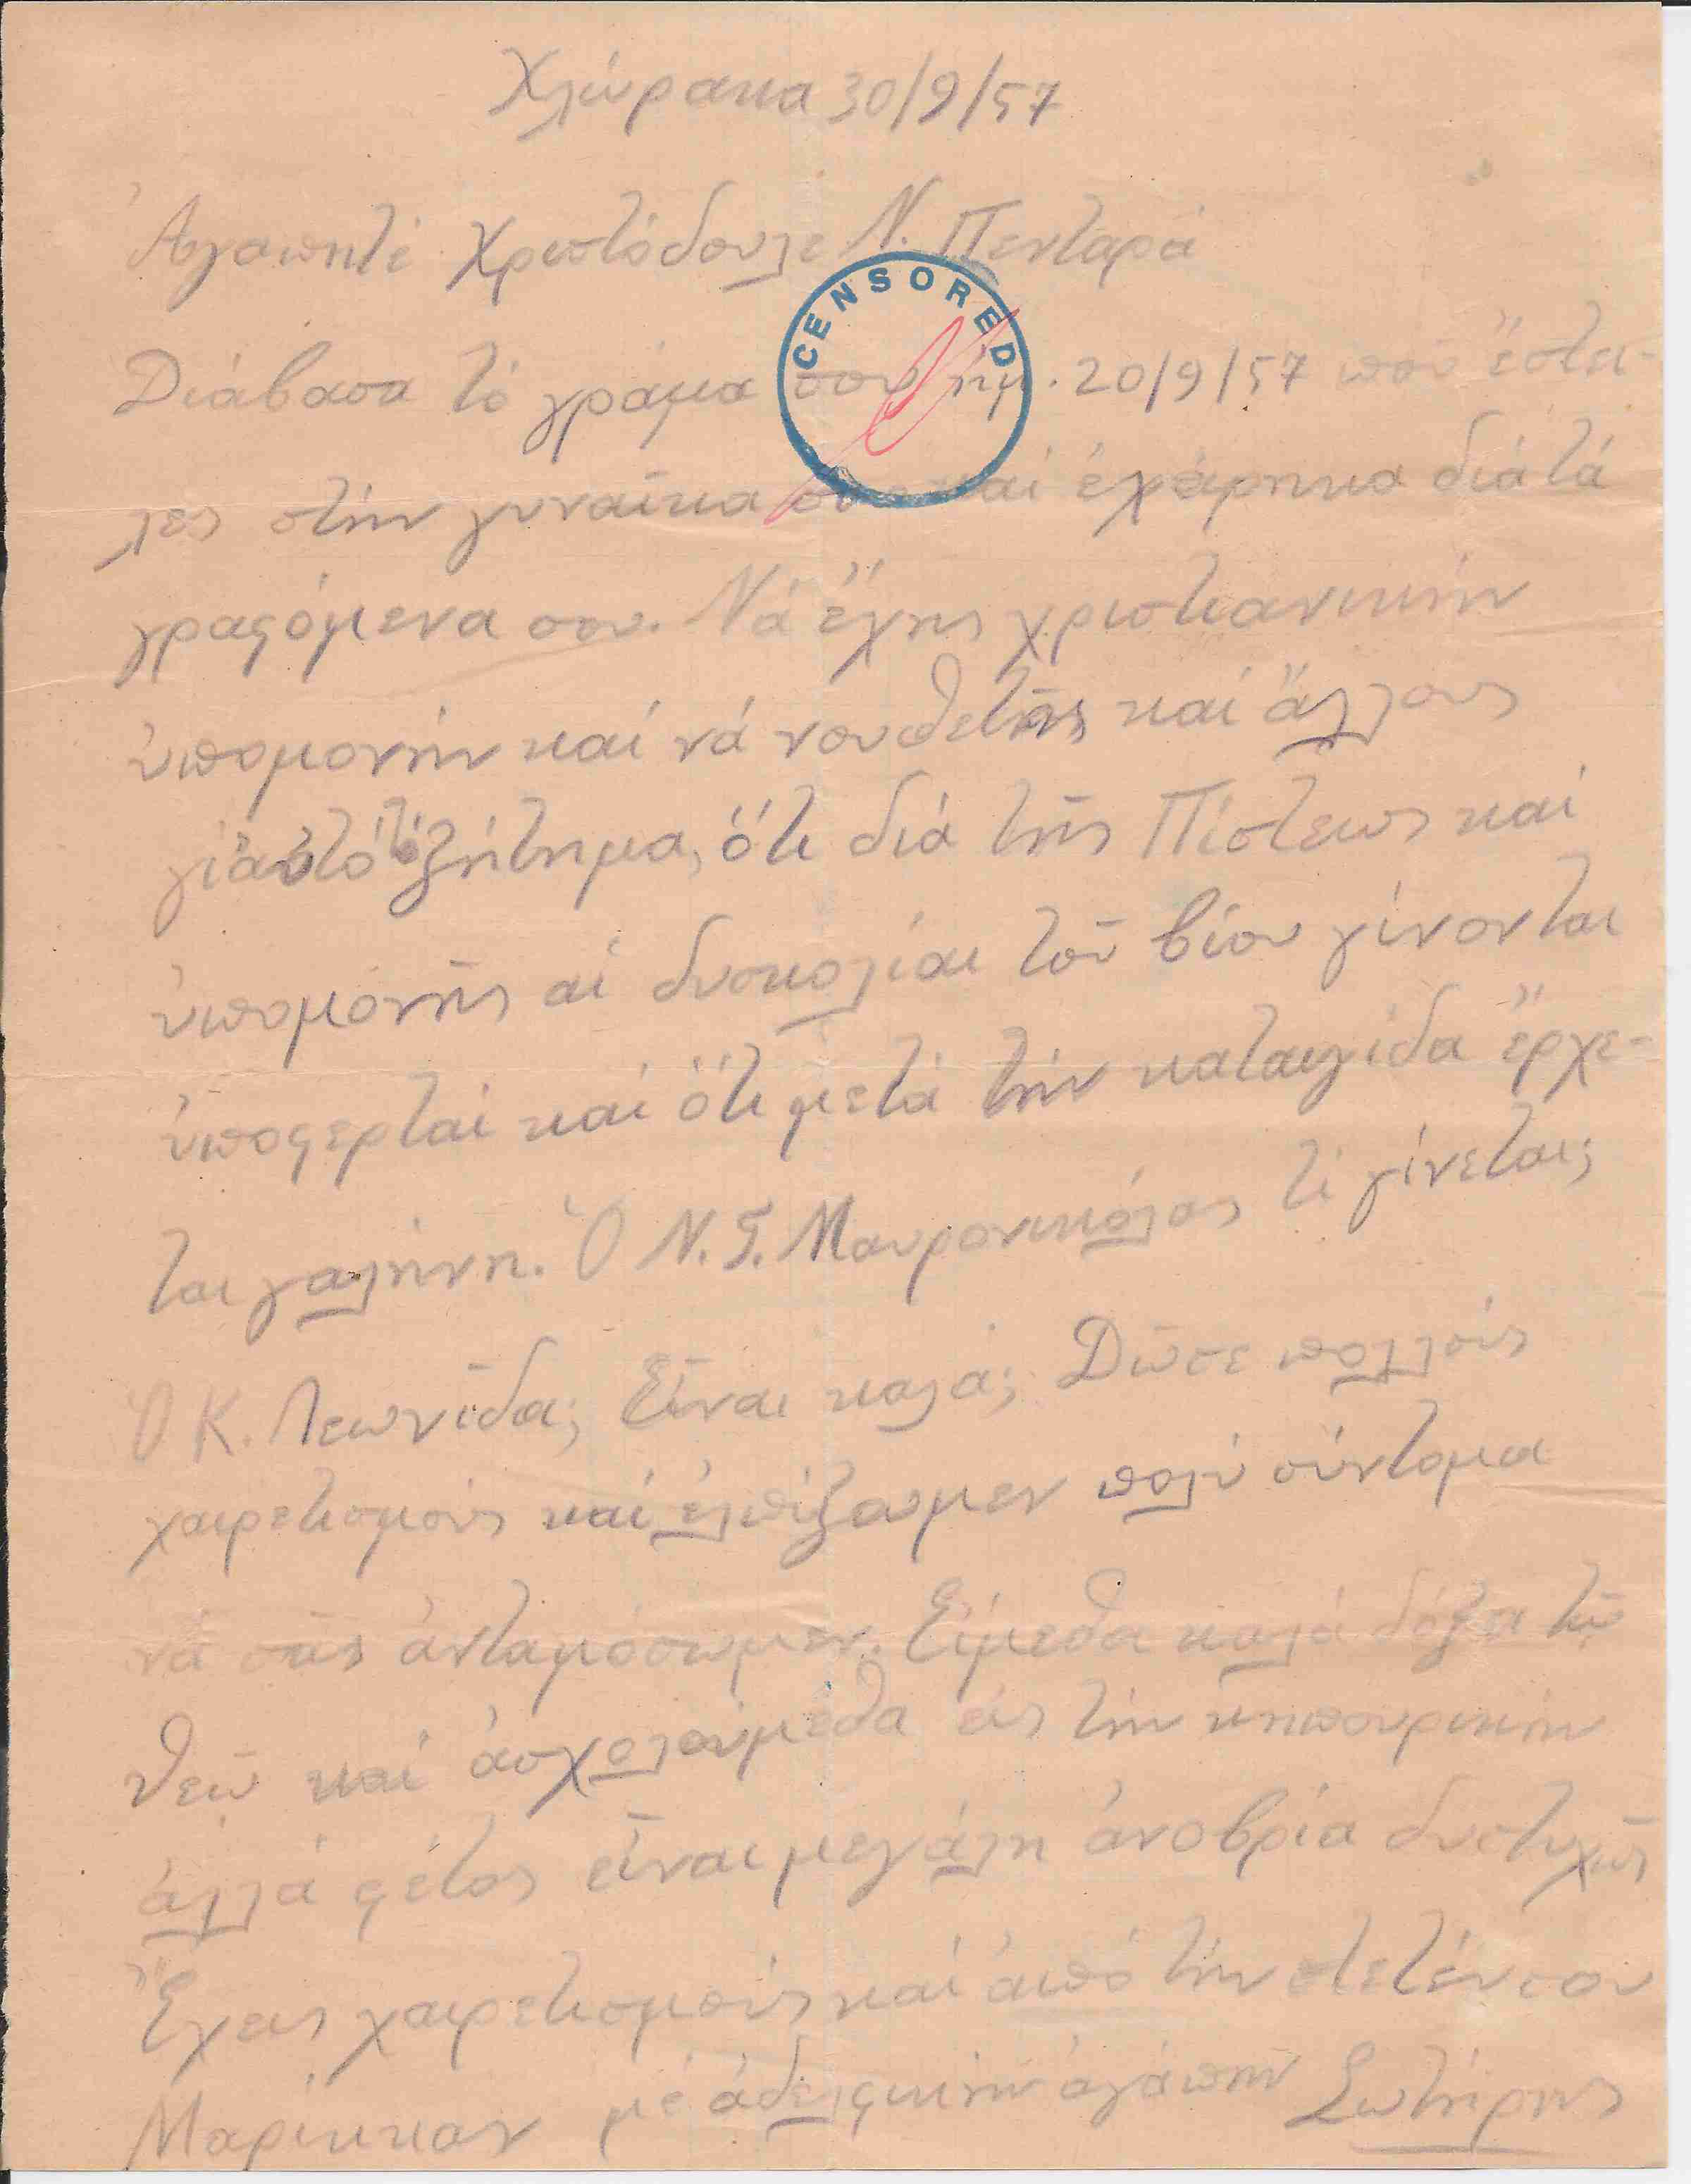 Χλώρακα 30/9/57
Ἀγαπητέ Χριστόδουλε Ν. Πενταρά
CENSORED
Διάβασα τό γράμα σου ἡμ. 20/9/57 πού ἔστει-
λες στήν γυναῖκα σου καί ἐχάρηκα διά τά
γραφόμενα σου. Νά ἔχης χριστιανικήν
ὑπομονήν καί νά νουθετῆς καί ἄλλους
γι' αὐτό τό ζήτημα, ὅτι διά τῆς Πίστεως καί
ὑπομονῆς αἱ δυσκολίαι τοῦ βίου γίνονται
ὑποφερταί καί ὅτι μετά τήν καταιγίδα ἔρχε-
ται γαλήνη. Ὁ Ν. Γ. Μαυρονικόλας τί γίνεται;
Ὁ Κ. Λεωνίδα; Εἶναι καλά; Δῶσε πολλούς
χαιρετισμούς καί ἐλπίζωμεν πολύ σύντομα
νά σᾶς ἀνταμόσωμεν. Εἴμεθα καλά δόξα τῷ
Θεῷ καί ἀσχολούμεθα εἰς τήν κηπουρικήν
ἀλλά φέτος εἶναι μεγάλη ἀνοβρία δυστυχῶς
Ἔχεις χαιρετισμούς καί ἀπό τήν στετέν σου
Μαρίκκαν μέ ἀδελφικήν ἀγάπην Σωτήρης